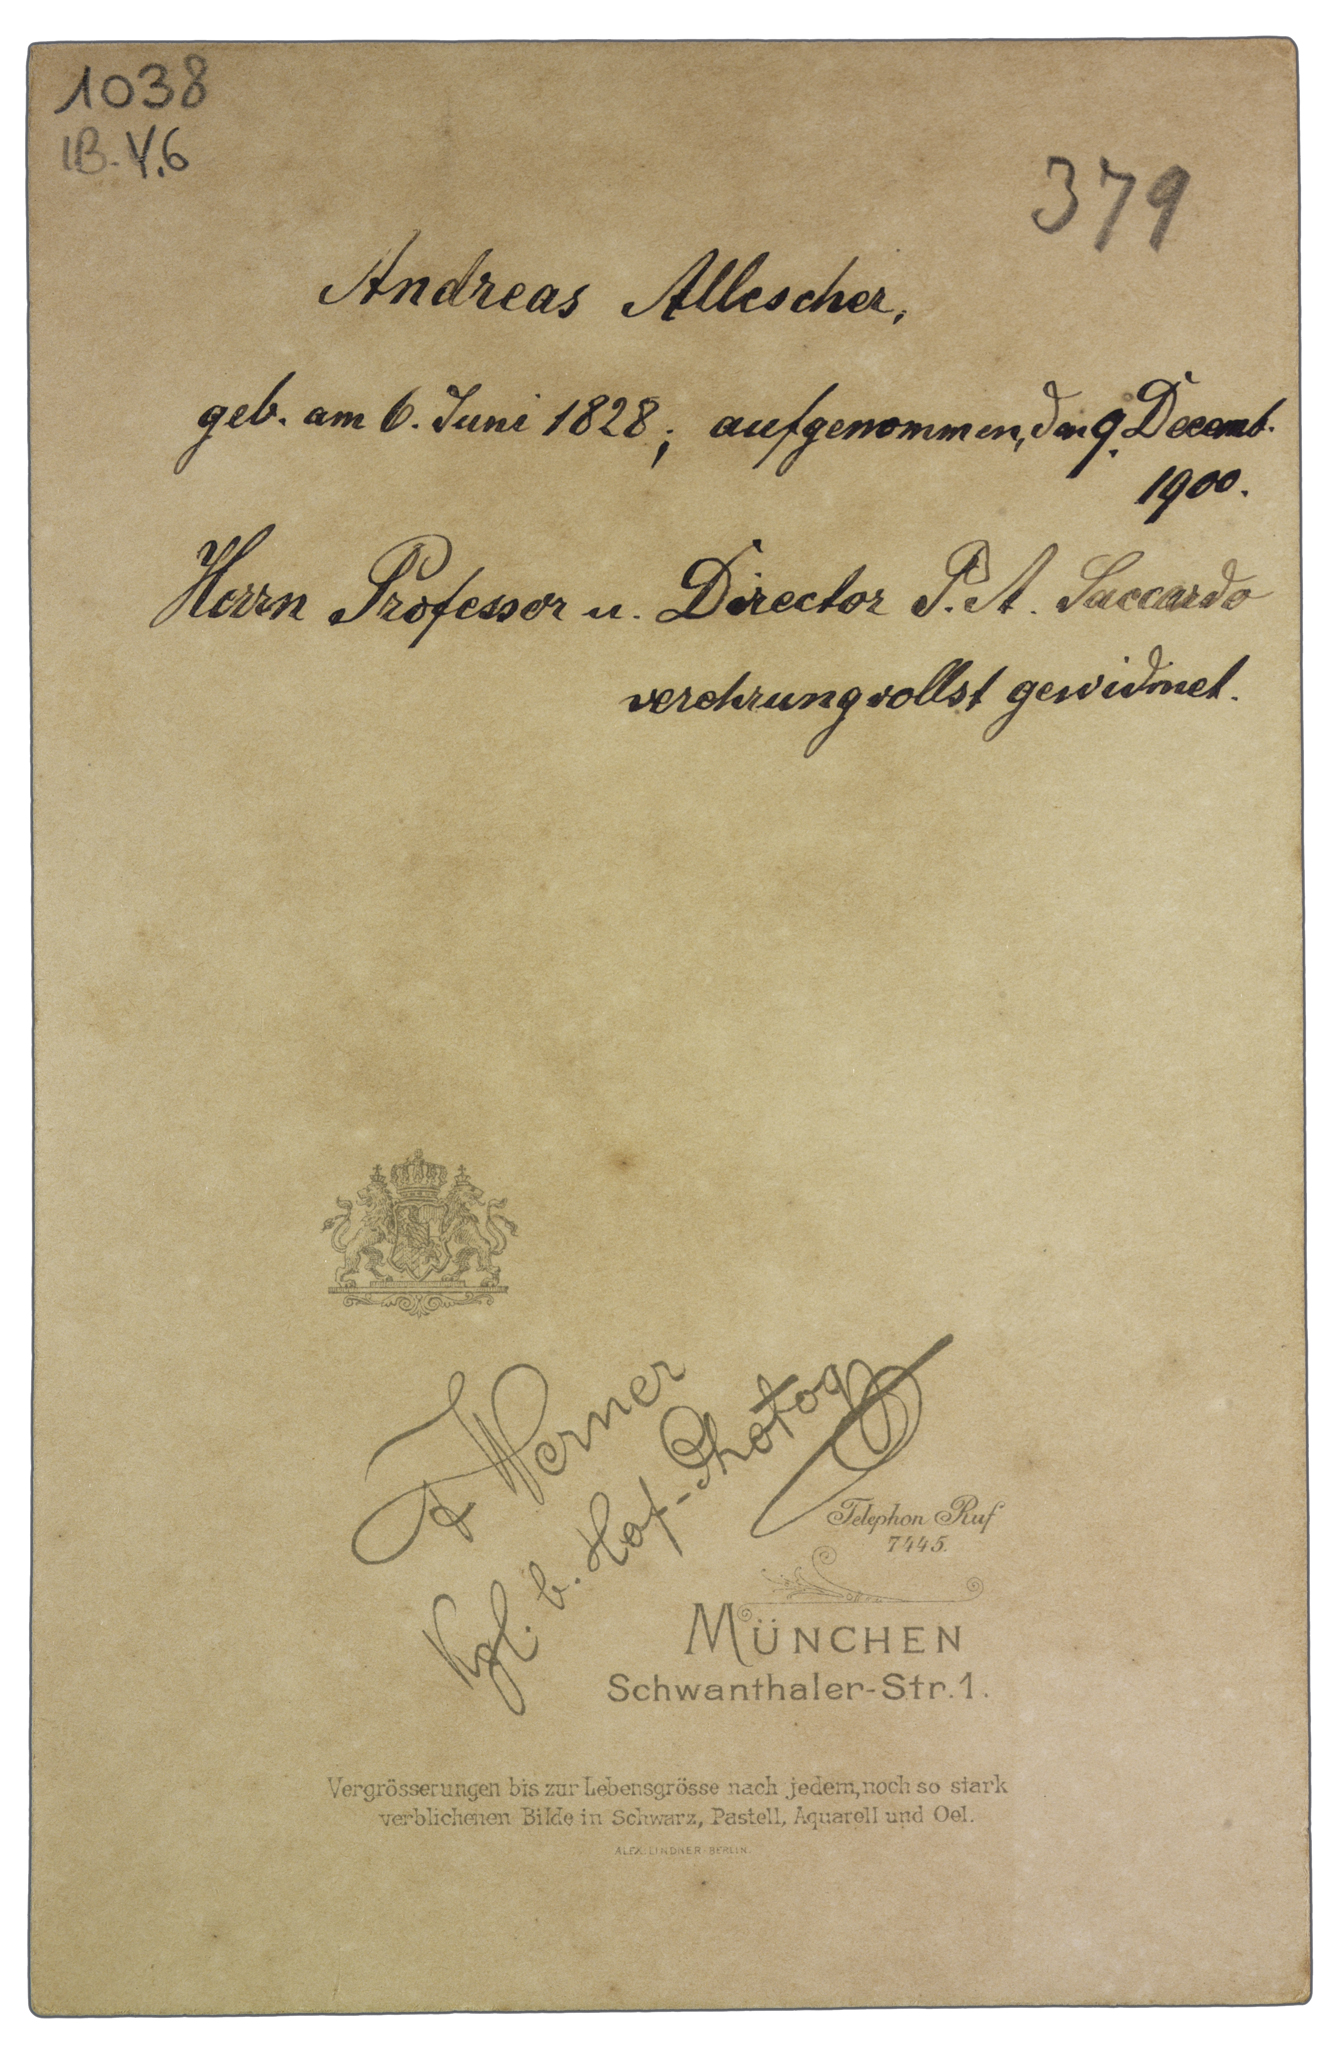 1038
IB. Y.6
379
Andreas Allescher,
geb. am 6. Juni 1828; aufgenommen, den 9. Decemb.
1900.
Herrn Professor u. Director P. A. Saccardo
verehrungvollst gewidmet.
F Werner
Kgl. b. Hof-Photog
Telephon Ruf
7445.
MÜNCHEN
Schwanthaler-Str. 1.
Vergrösserungen bis zur Lebensgrösse nach jedem, noch so stark
verblichenen Bilde in Schwarz, Pastell, Aquarell und Oel.
ALEX. LINDNER-BERLIN.